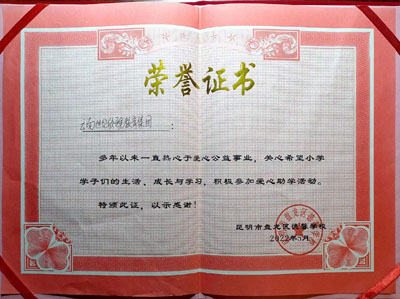 荣誉证书
云南世纪教育集团：
多年以来一直热心于爱心公益事业，关心希望小学
学子们的生活、成长与学习，积极参加爱心助学活动。
特颁此证，以示感谢！
昆明市盘龙区德馨学校
2022年5月